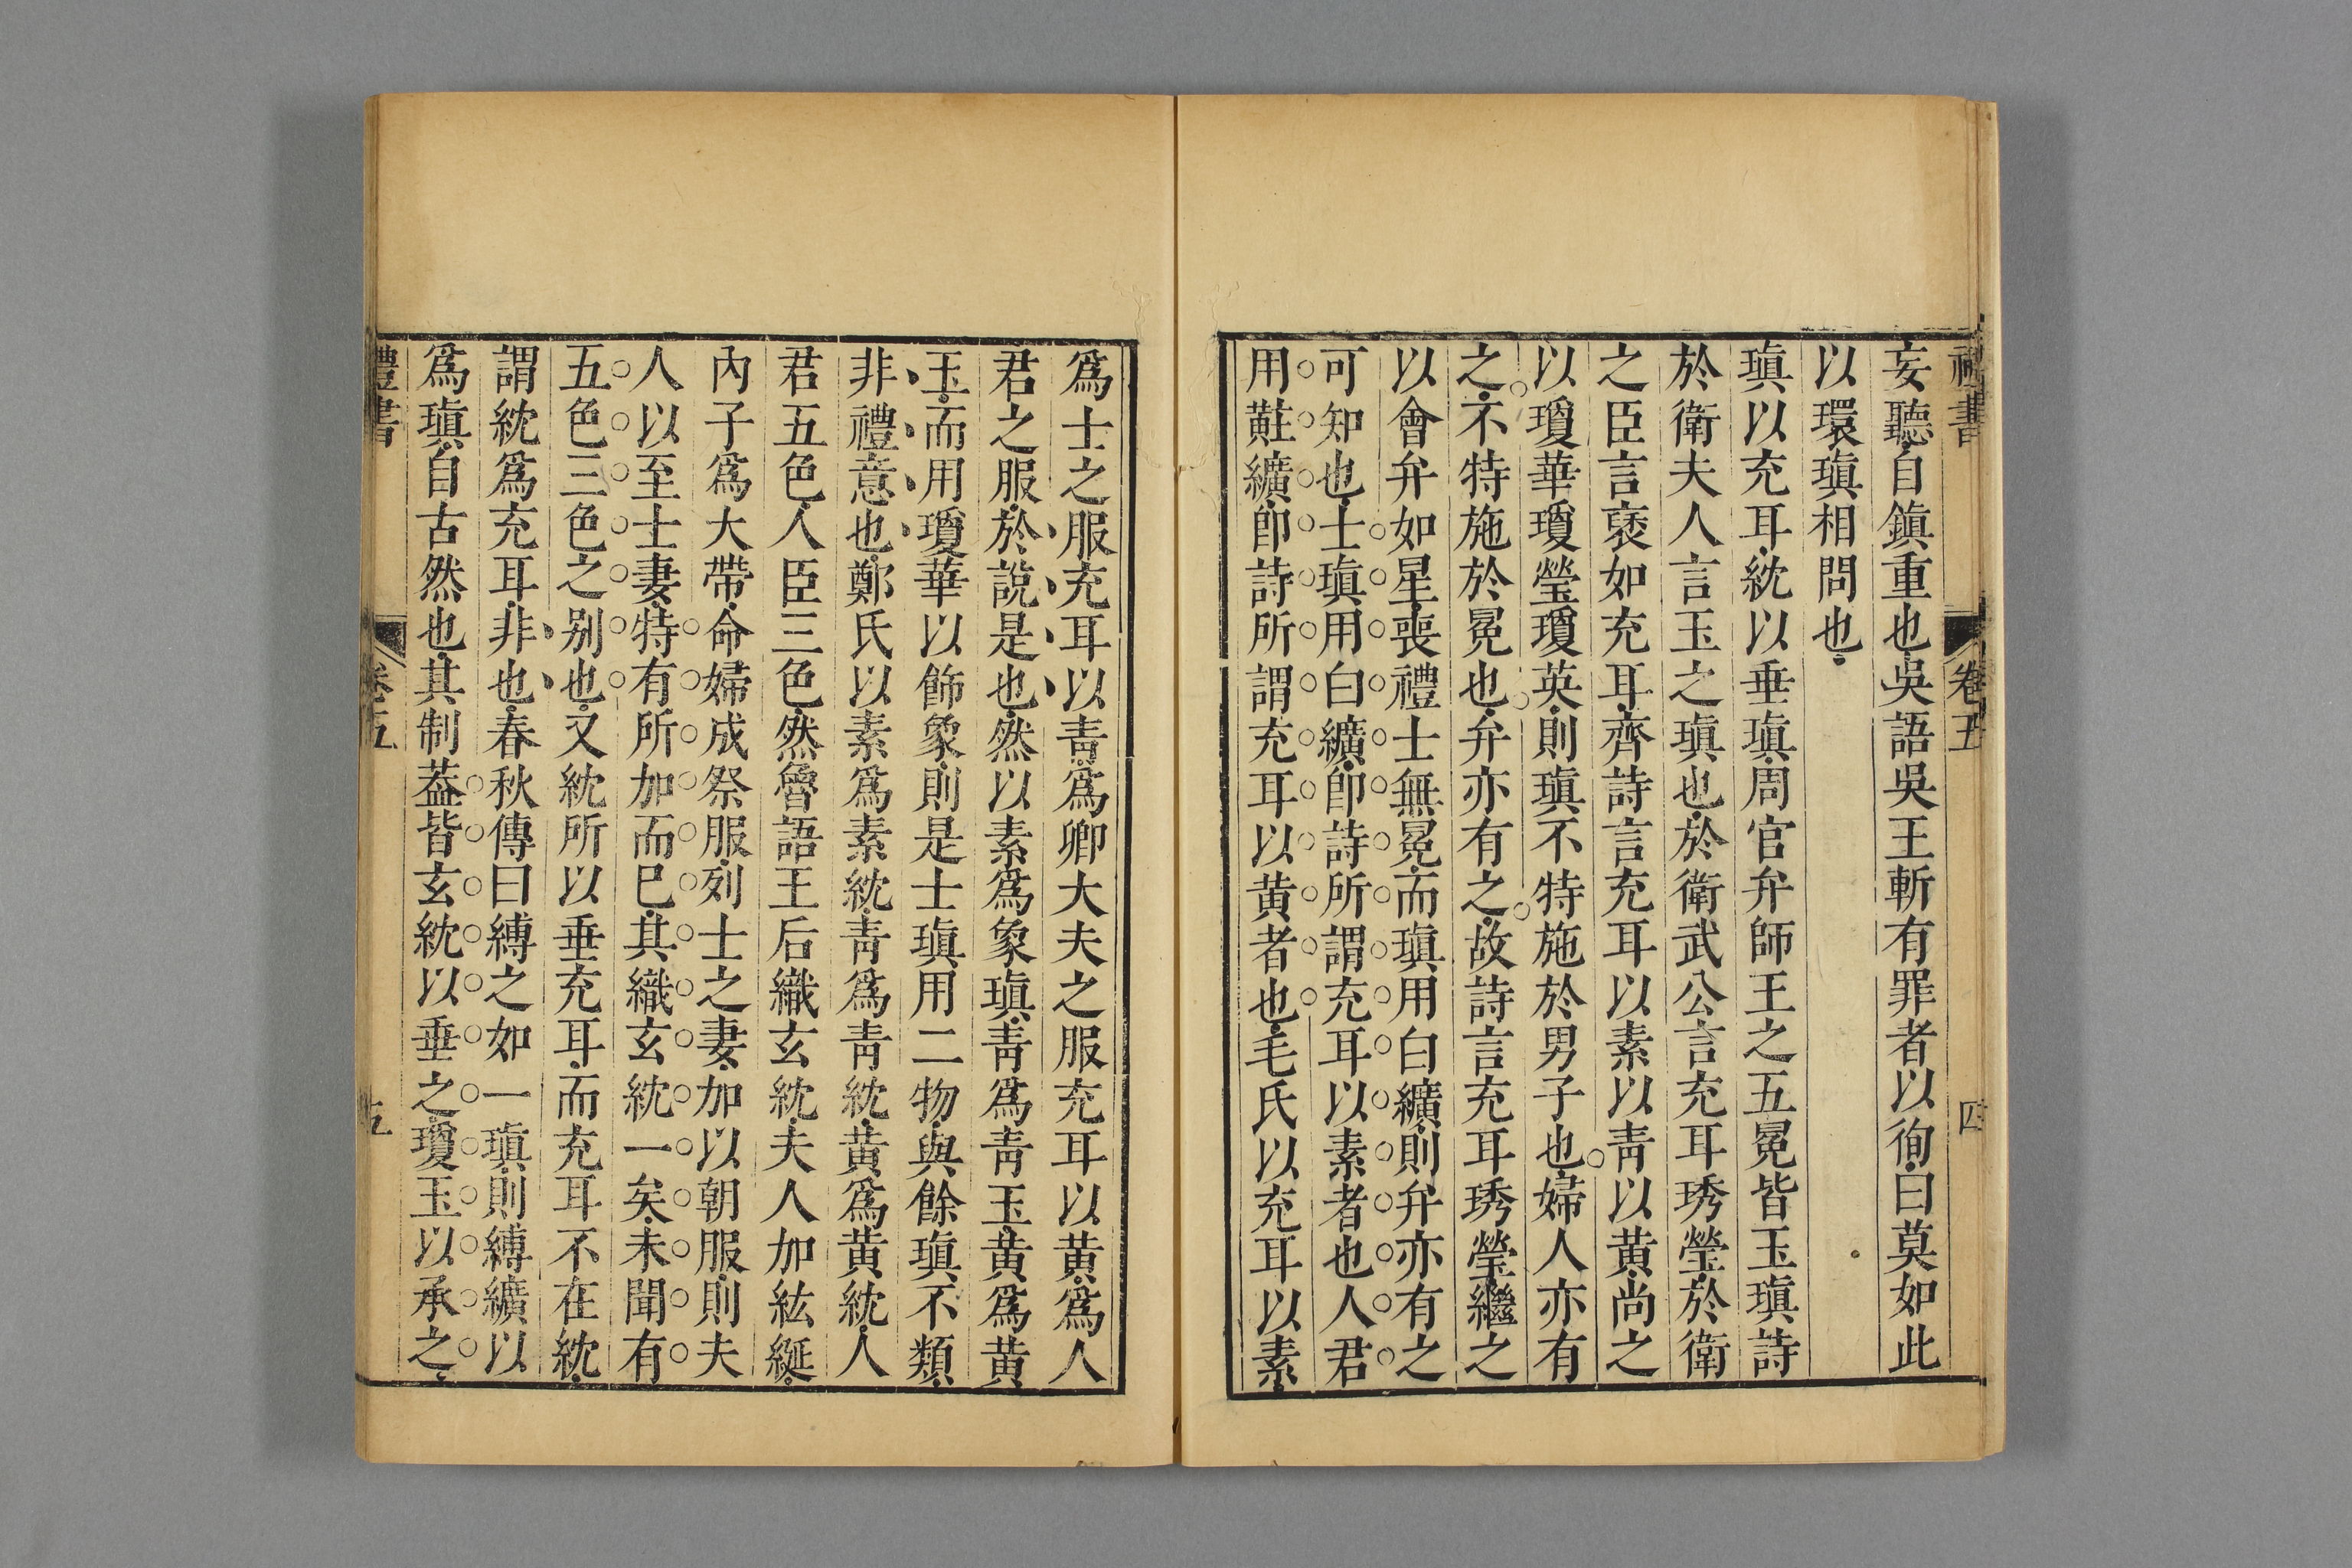 禮書 卷五 四
妄聽自鎮重也吳語吳王斬有罪者以徇曰莫如此
以環瑱相問也
瑱以充耳紞以垂瑱周官弁師王之五冕皆玉瑱詩
於衛夫人言玉之瑱也於衛武公言充耳琇瑩於衛
之臣言褎如充耳齊詩言充耳以素以青以黃尚之
以瓊華瓊瑩瓊英則瑱不特施於男子也婦人亦有
之不特施於冕也弁亦有之故詩言充耳琇瑩繼之
以會弁如星喪禮士無冕而瑱用白纊則弁亦有之
可知也士瑱用白纊卽詩所謂充耳以素者也人君
用黈纊卽詩所謂充耳以黃者也毛氏以充耳以素
爲士之服充耳以青爲卿大夫之服充耳以黃爲人
君之服於說是也然以素爲象瑱青爲青玉黃爲黃
玉而用瓊華以飾象則是士瑱用二物與餘瑱不類
非禮意也鄭氏以素爲素紞青爲青紞黃爲黃紞人
君五色人臣三色然魯語王后織玄紞夫人加紘綖
內子爲大帶命婦成祭服列士之妻加以朝服則夫
人以至士妻特有所加而巳其織玄紞一矣未聞有
五色三色之别也又紞所以垂充耳而充耳不在紞
謂紞爲充耳非也春秋傳曰縛之如一瑱則縛纊以
爲瑱自古然也其制葢皆玄紞以垂之瓊玉以承之
禮書 卷五 五